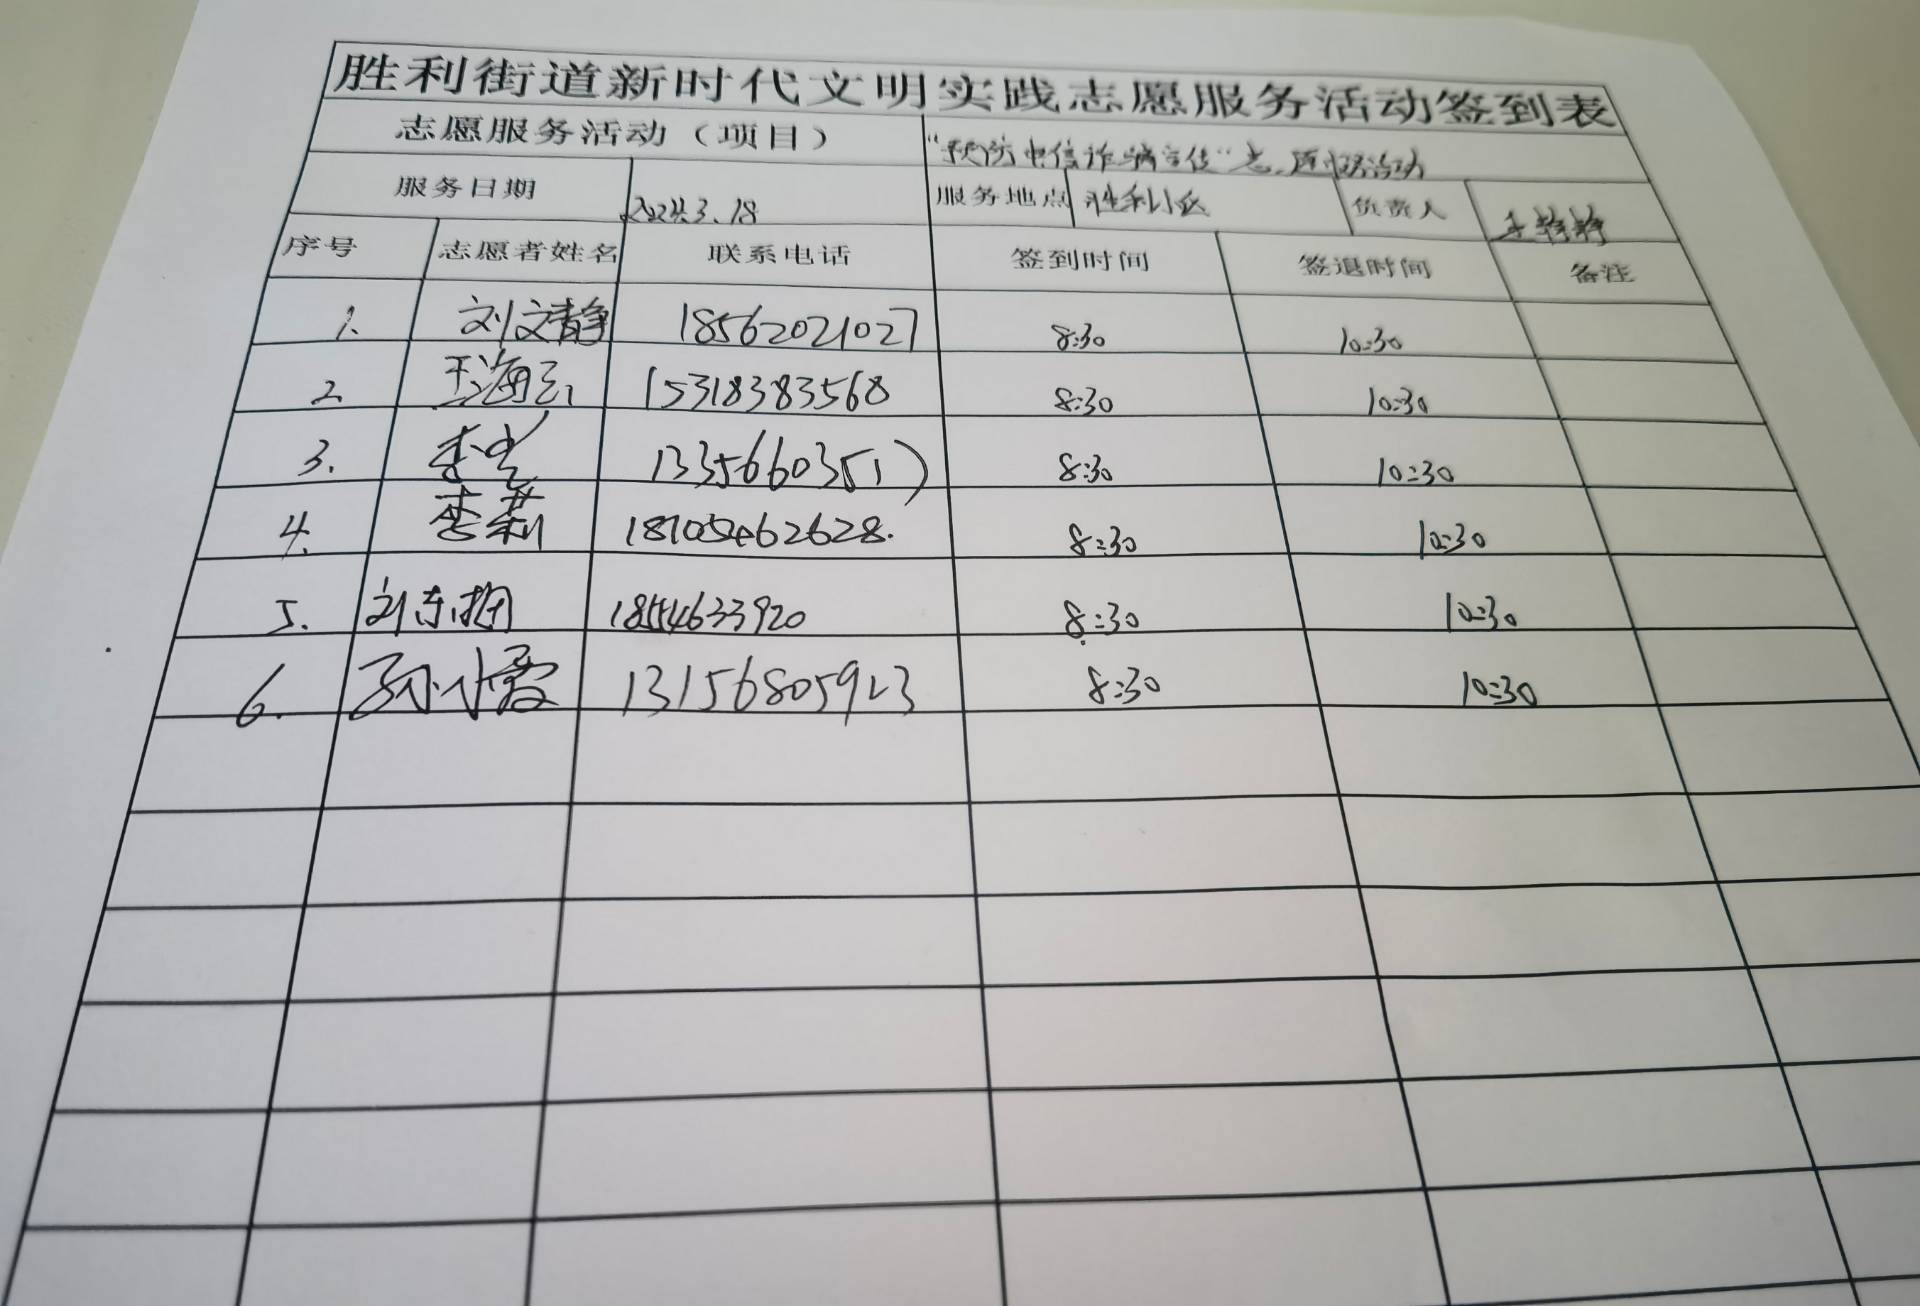 胜利街道新时代文明实践志愿服务活动签到表
志愿服务活动（项目） “预防电信诈骗宣传”志愿服务活动
服务日期 2024.3.18 服务地点 胜利小区 负责人
序号 志愿者姓名 联系电话 签到时间 签退时间 备注
1. 刘文静 18562021027 8:30 10:30
2. 王海 15318383568 8:30 10:30
3. 李 8:30 10:30
4. 李莉 18105462628. 8:30 10:30
5. 刘东 8:30 10:30
6. 孙 13156805923 8:30 10:30